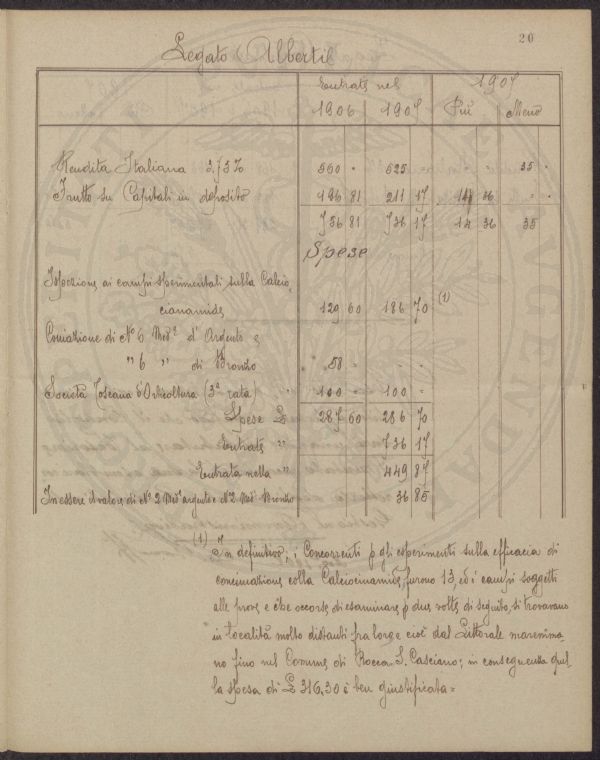 20
Legato Alberti
Entrate nel 1907
1906 1907 Più Meno
Rendita Italiana 3,75% 560 " 525 = " " 35 "
Frutto su Capitali in deposito 196 81 211 17 14 36 " "
756 81 736 17 14 36 35
Spese
Ispezione ai campi sperimentali sulla Calcio
cianamide 129 60 186 70 (1)
Coniazione di No 6 Medе d'Argento e
" 6 " di Bronzo " 58 = " "
Società Toscana d'Orticoltura (3a rata) " 100 = 100 =
Spese £ 287 60 286 70
Entrate " 736 17
Entrata netta " 449 47
In essere il valore di No 2 Mede argento e No 2 Mede Bronzo 36 85
(1) In definitiva, i Concorrenti p gli esperimenti sulla efficacia di
concimazione colla Calciocianamide, furono 13, ed i campi soggetti
alle prove e che occorse di esaminare p due volte di seguito, si trovavano
in località molto distanti fra loro e cioè dal Littorale maremma
no fino nel Comune di Rocca S. Casciano; in conseguenza quel
la spesa di £ 316,30 è ben giustificata=